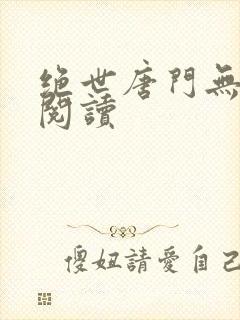 绝世唐门無
閱讀
傻妞請愛自己